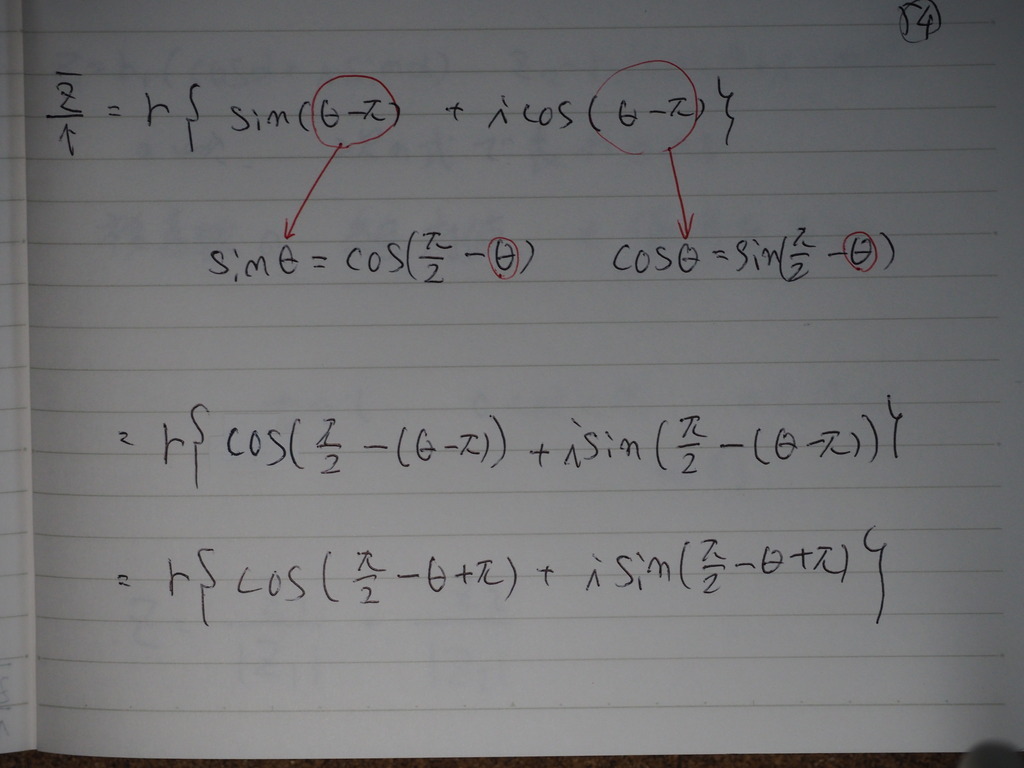 54
z̅/1 = r{ sin(θ-π) + i cos(θ-π)}
sinθ = cos(π/2 - θ) cosθ = sin(π/2 - θ)
= r{ cos(π/2 - (θ-π)) + i sin(π/2 - (θ-π))}
= r{ cos(π/2 - θ+π) + i sin(π/2 - θ+π)}